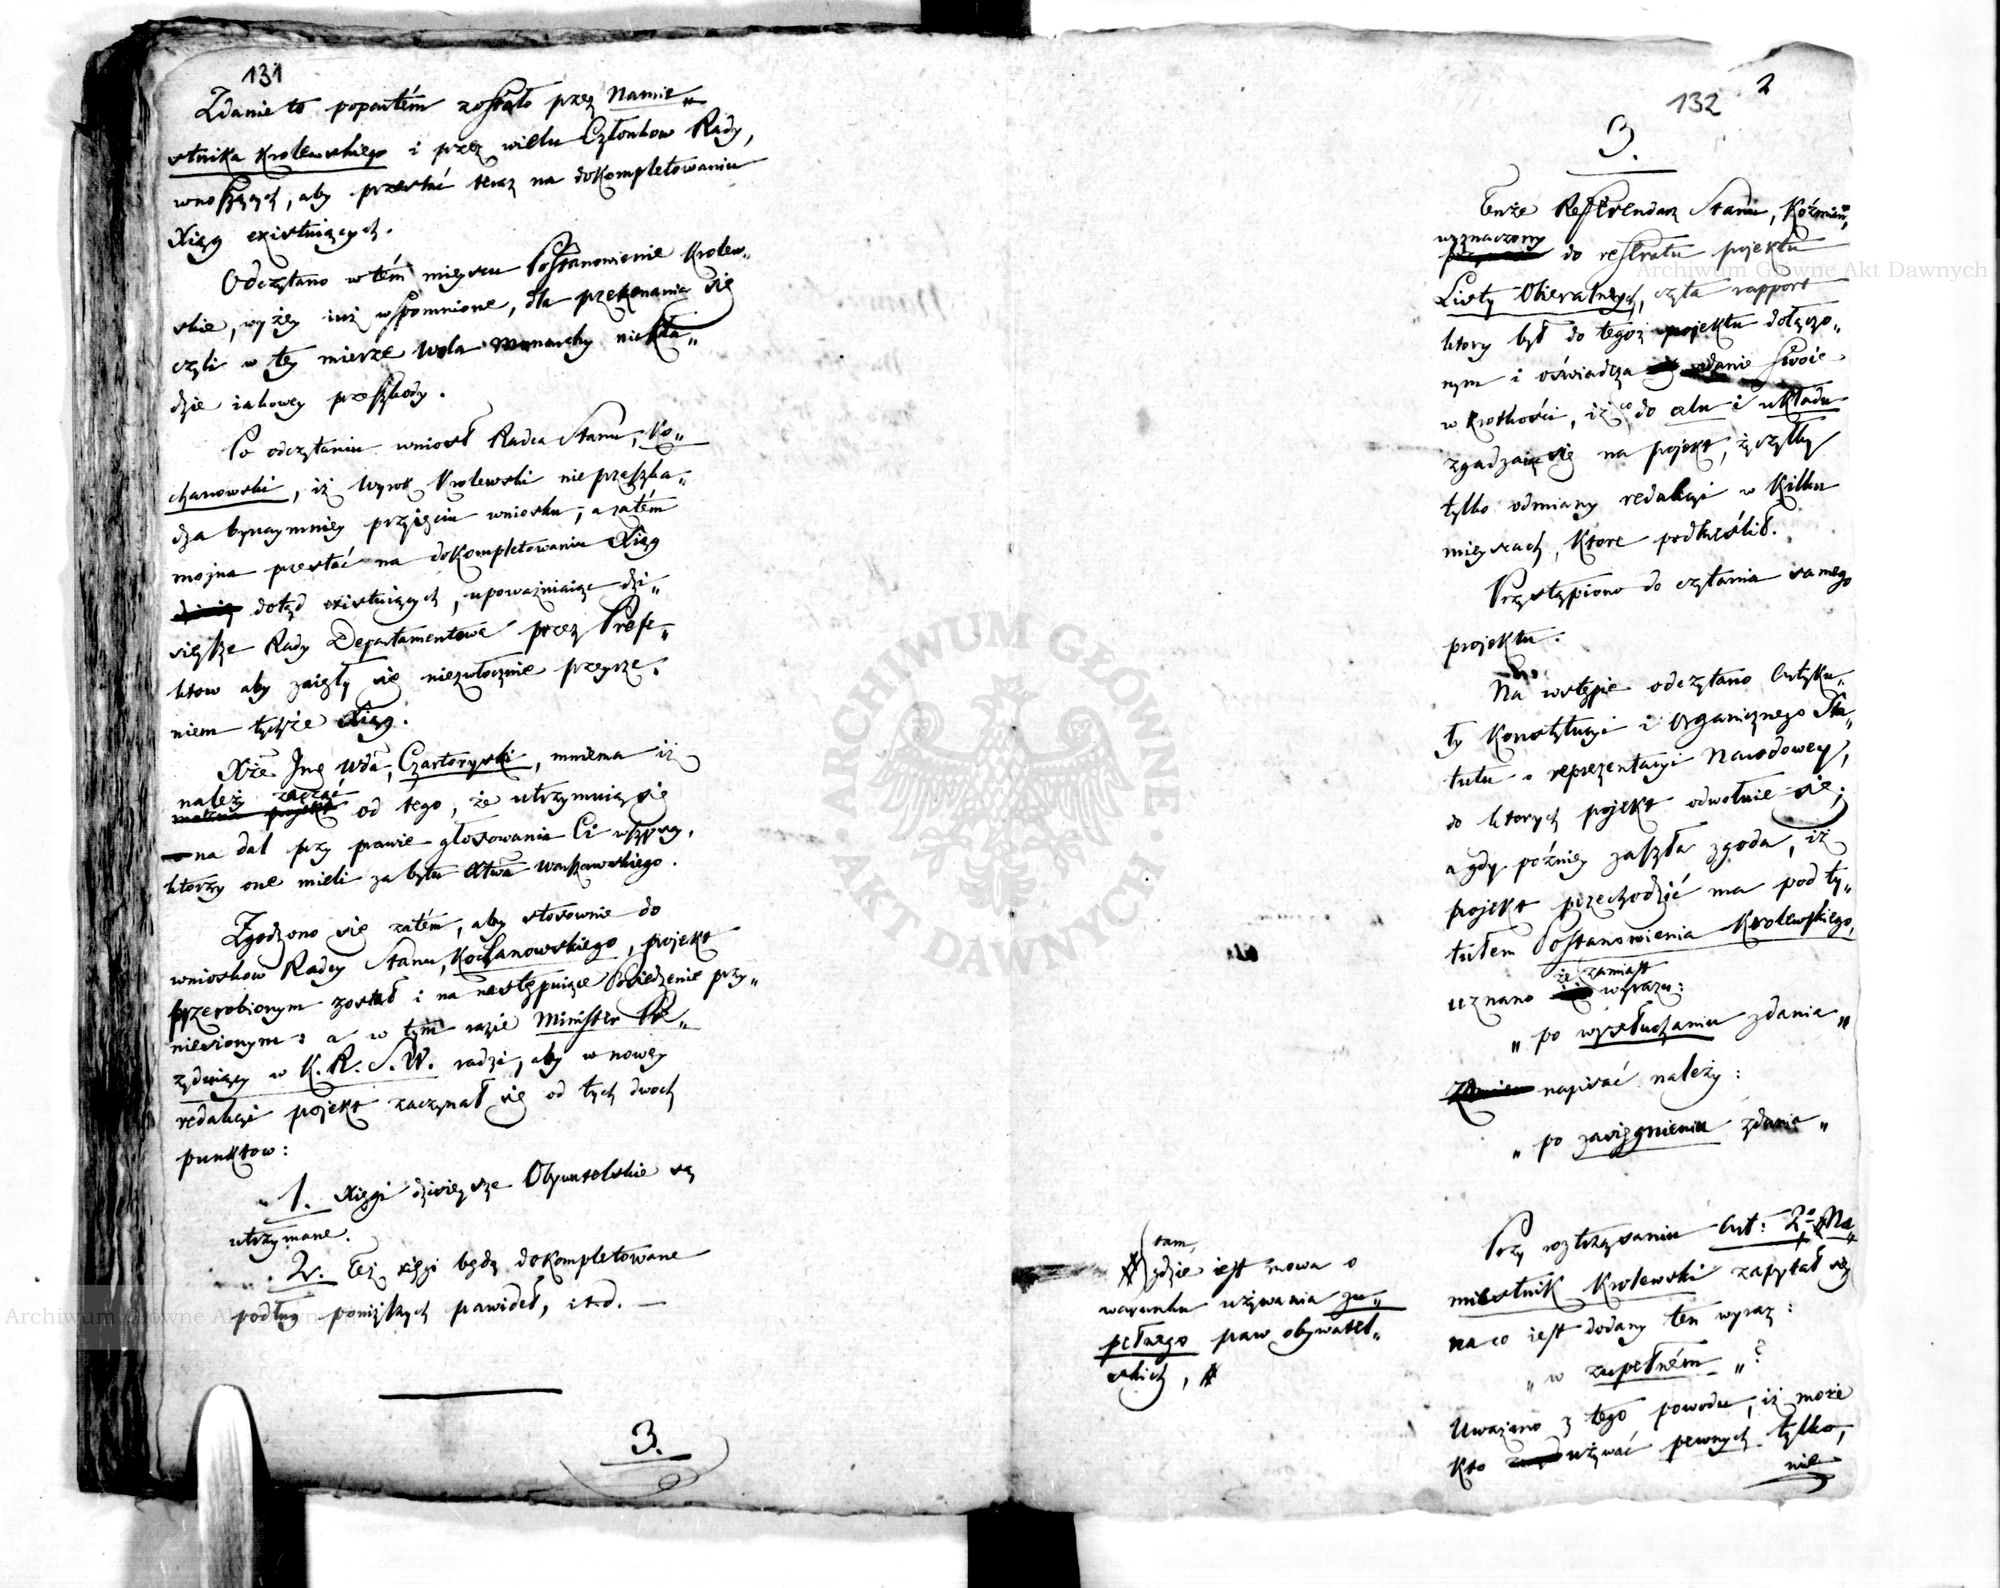 131
Zdanie to popartém zostało przez Namie„
stnika Krolewskiego i przez wielu Członkow Rady,
wnoszących, aby przestać teraz na dokompletowaniu
Xiąg existuiących.
Odczytano w tém mieyscu Postanowienie Krolew„
skie, wyżey iuż wspomnione, dla przekonania się
czyli w tey mierze Wola Monarchy niekła„
dzie iakowey przeszkody.
Po odczytaniu wniosł Radca Stanu, Ko„
chanowski, iż Wyrok Krolewski nie przeszka„
dza bynaymniey przyięciu wniosku, a zatém
można przestać na dokompletowaniu Xiąg
dotąd existuiących, upoważniaiąc dzi„
sieysze Rady Departamentowe przez Prefe„
ktow aby zaięły się niezwłocznie przeyrze„
niem tychże Xiąg.
Xże Jmć Wda, Czartoryski, mniema iż
należy zacząć
od tego, że utrzymuią się
na dal przy prawie głosowania Ci wszyscy,
ktorzy one mieli za bytu Xtwa Warszawskiego.
Zgodzono się zatém, aby stosownie do
wnioskow Radcy Stanu, Kochanowskiego, projekt
przerobionym został i na następuiące Posiedzenie przy„
niesionym: a w tym razie Minister Prze„
zyduiący w K. R. S. W. radzi, aby w nowey
redakcyi projekt zaczynał się od tych dwoch
punktow:
1. Xięgi dzisieysze Obywatelskie są
utrzymane.
2. Też xięgi będą dokompletowane
podług poniższych prawideł, itd. —
3.
2
132
3.
Tenże Referendarz Stanu, Koźmian,
wyznaczony
do referatu projektu
Listy Obieralnych, czyta rapport
ktory był do tegoż projektu dołączo„
nym i oświadcza zdanie swoie
w krotkości, iż co do celu i układu
zgadzaiąc się na projekt, życzyłby
tylko odmiany redakcyi w kilku
mieyscach, ktore podkreślił.
Przystąpiono do czytania samego
projektu.
Na wstępie odczytano Artyku„
ły Konstytucyi i Organicznego Sta„
tutu o reprezentacyi Narodowey,
do ktorych projekt odwołuie się;
a gdy poźniey zaszła zgoda, iż
projekt przechodzić ma pod ty„
tułem Postanowienia Krolewskiego,
że zamiast
uznano wyrazu:
„ po wysłuchaniu zdania „
napisać należy:
„ po zasięgnieniu zdania „
Przy roztrząsaniu Art: 2o Na„
miestnik Krolewski zapytał się
na co iest dodany ten wyraz:
„ w zupełném „ ?
Uważano z tego powodu, iż może
kto używać pewnych tylko,
nie
tam,
gdzie iest mowa o
warunku używania zu„
pełnego praw obywatel„
skich,
ARCHIWUM GŁÓWNE
AKT DAWNYCH
Archiwum Główne Akt Dawnych
Archiwum Główne Akt Dawnych